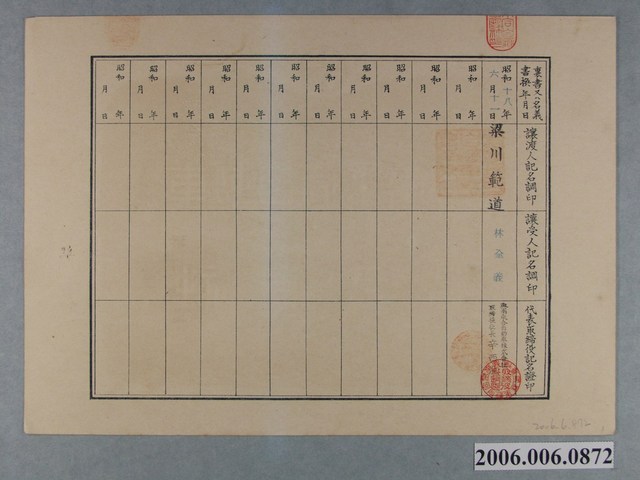 裏書又ハ名義
書換年月日
讓渡人記名調印
讓受人記名調印
代表取締役記名證印
昭和十八年
六月十一日
梁川範道
林金義
昭和 年
月 日
昭和 年
月 日
昭和 年
月 日
昭和 年
月 日
昭和 年
月 日
昭和 年
月 日
昭和 年
月 日
昭和 年
月 日
昭和 年
月 日
昭和 年
月 日
昭和 年
月 日
2006.006.0872